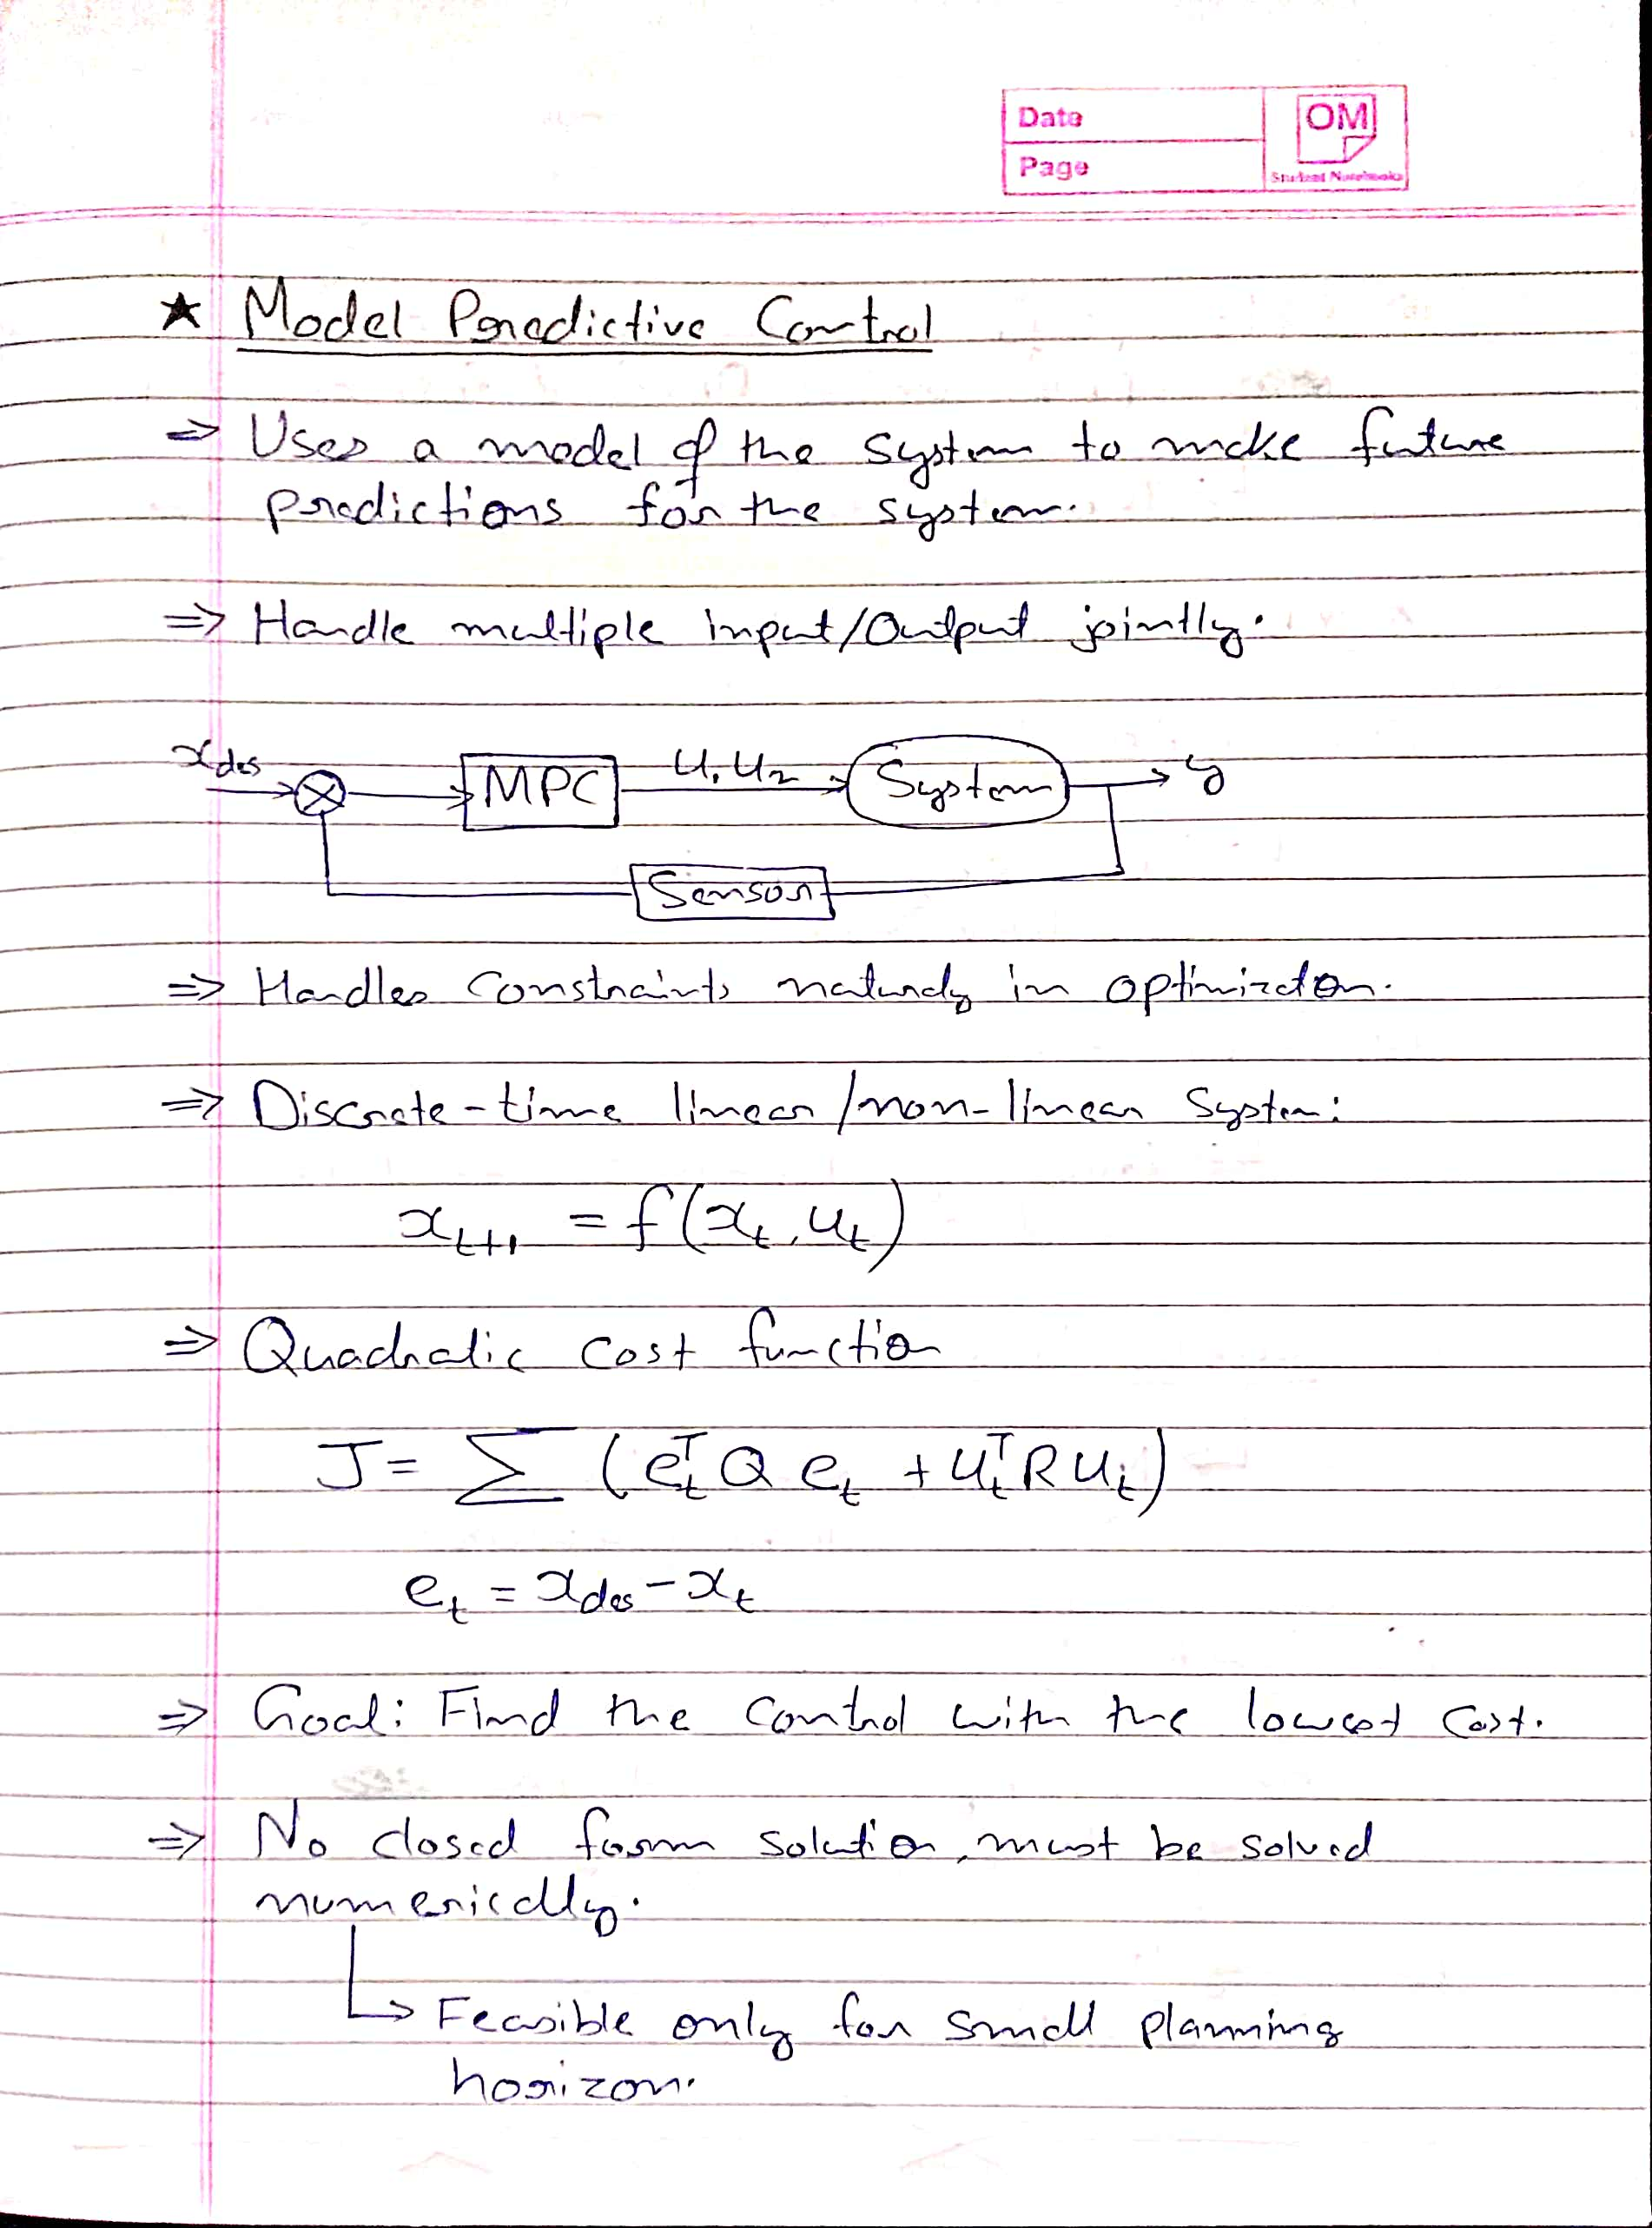 Date
Page
OM
Student Notebooks
★ Model Predictive Control
⇒ Uses a model of the system to make future
predictions for the system.
⇒ Handle multiple input/Output jointly.
x_des
MPC
u₁ u₂
System
y
Sensor
⇒ Handles Constraints naturally in optimization.
⇒ Discrete-time linear/non-linear System:
x_{t+1} = f(x_t, u_t)
⇒ Quadratic cost function
J = Σ (e_t^T Q e_t + u_t^T R u_t)
e_t = x_des - x_t
⇒ Goal: Find the control with the lowest cost.
⇒ No closed form solution, must be solved
numerically.
↳ Feasible only for small planning
horizon.